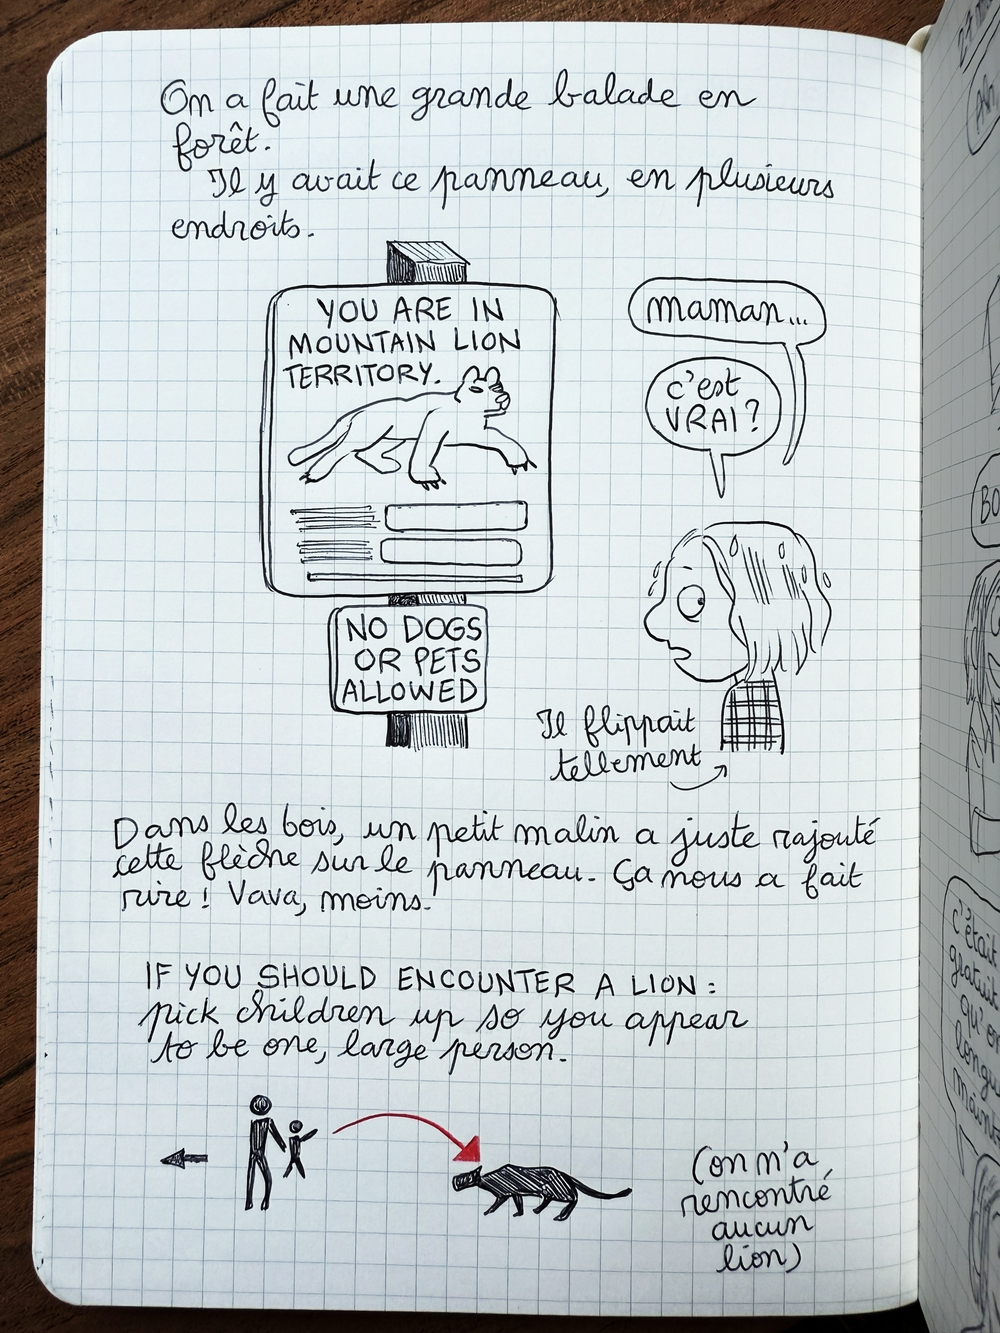 On a fait une grande balade en
forêt.
Il y avait ce panneau, en plusieurs
endroits.
YOU ARE IN
MOUNTAIN LION
TERRITORY.
NO DOGS
OR PETS
ALLOWED
maman...
c'est
VRAI?
Il flippait
tellement
Dans les bois, un petit malin a juste rajouté
cette flèche sur le panneau. Ça nous a fait
rire! Vava, moins.
IF YOU SHOULD ENCOUNTER A LION:
pick children up so you appear
to be one, large person.
(on m'a
rencontré
aucun
lion)
c'était
gratuit
qu'on